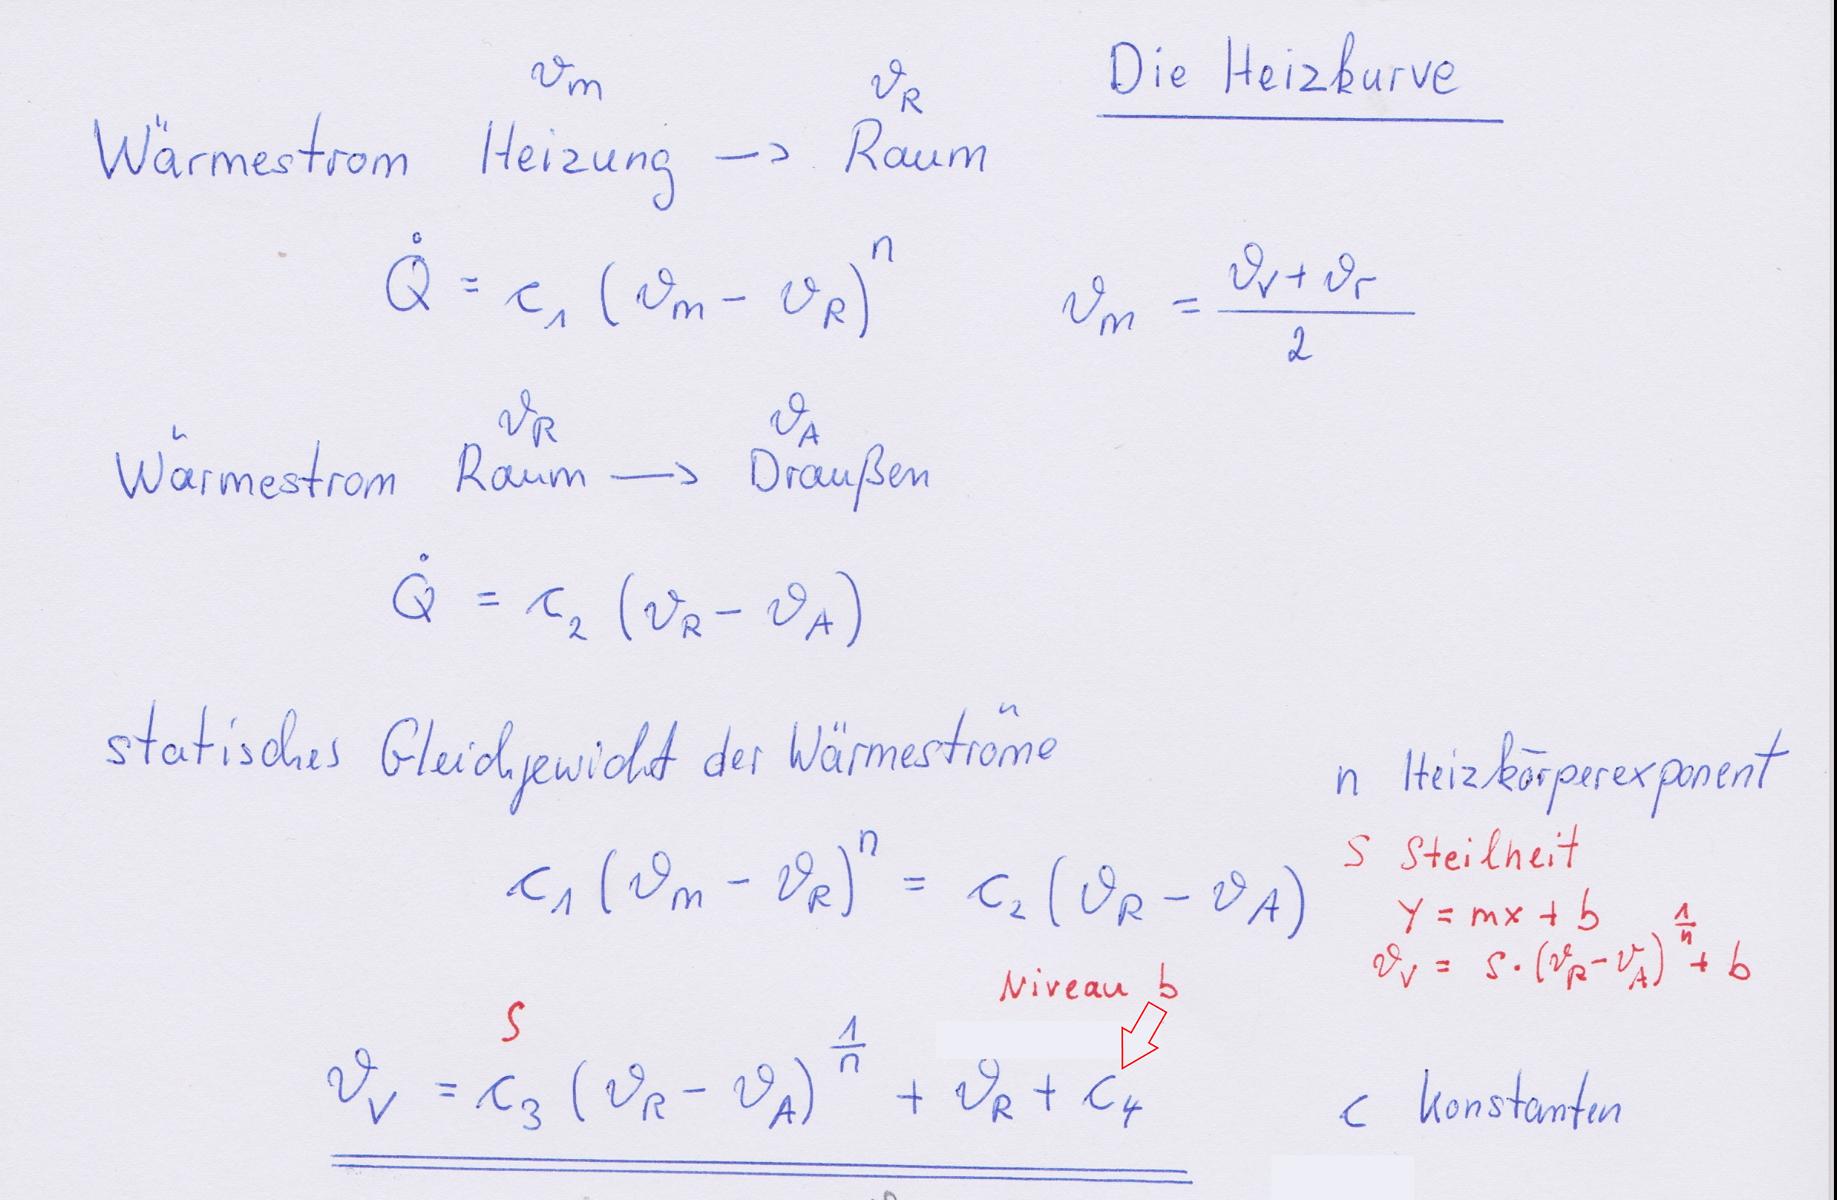 Die Heizkurve
ϑm ϑR
Wärmestrom Heizung → Raum
Q̇ = c₁ (ϑm − ϑR)ⁿ
ϑm = (ϑV + ϑr) / 2
ϑR ϑA
Wärmestrom Raum → Draußen
Q̇ = c₂ (ϑR − ϑA)
statisches Gleichgewicht der Wärmeströme
c₁ (ϑm − ϑR)ⁿ = c₂ (ϑR − ϑA)
n Heizkörperexponent
S Steilheit
y = mx + b
ϑV = S · (ϑR − ϑA)^(1/n) + b
Niveau b
S
ϑV = c₃ (ϑR − ϑA)^(1/n) + ϑR + c₄
c Konstanten